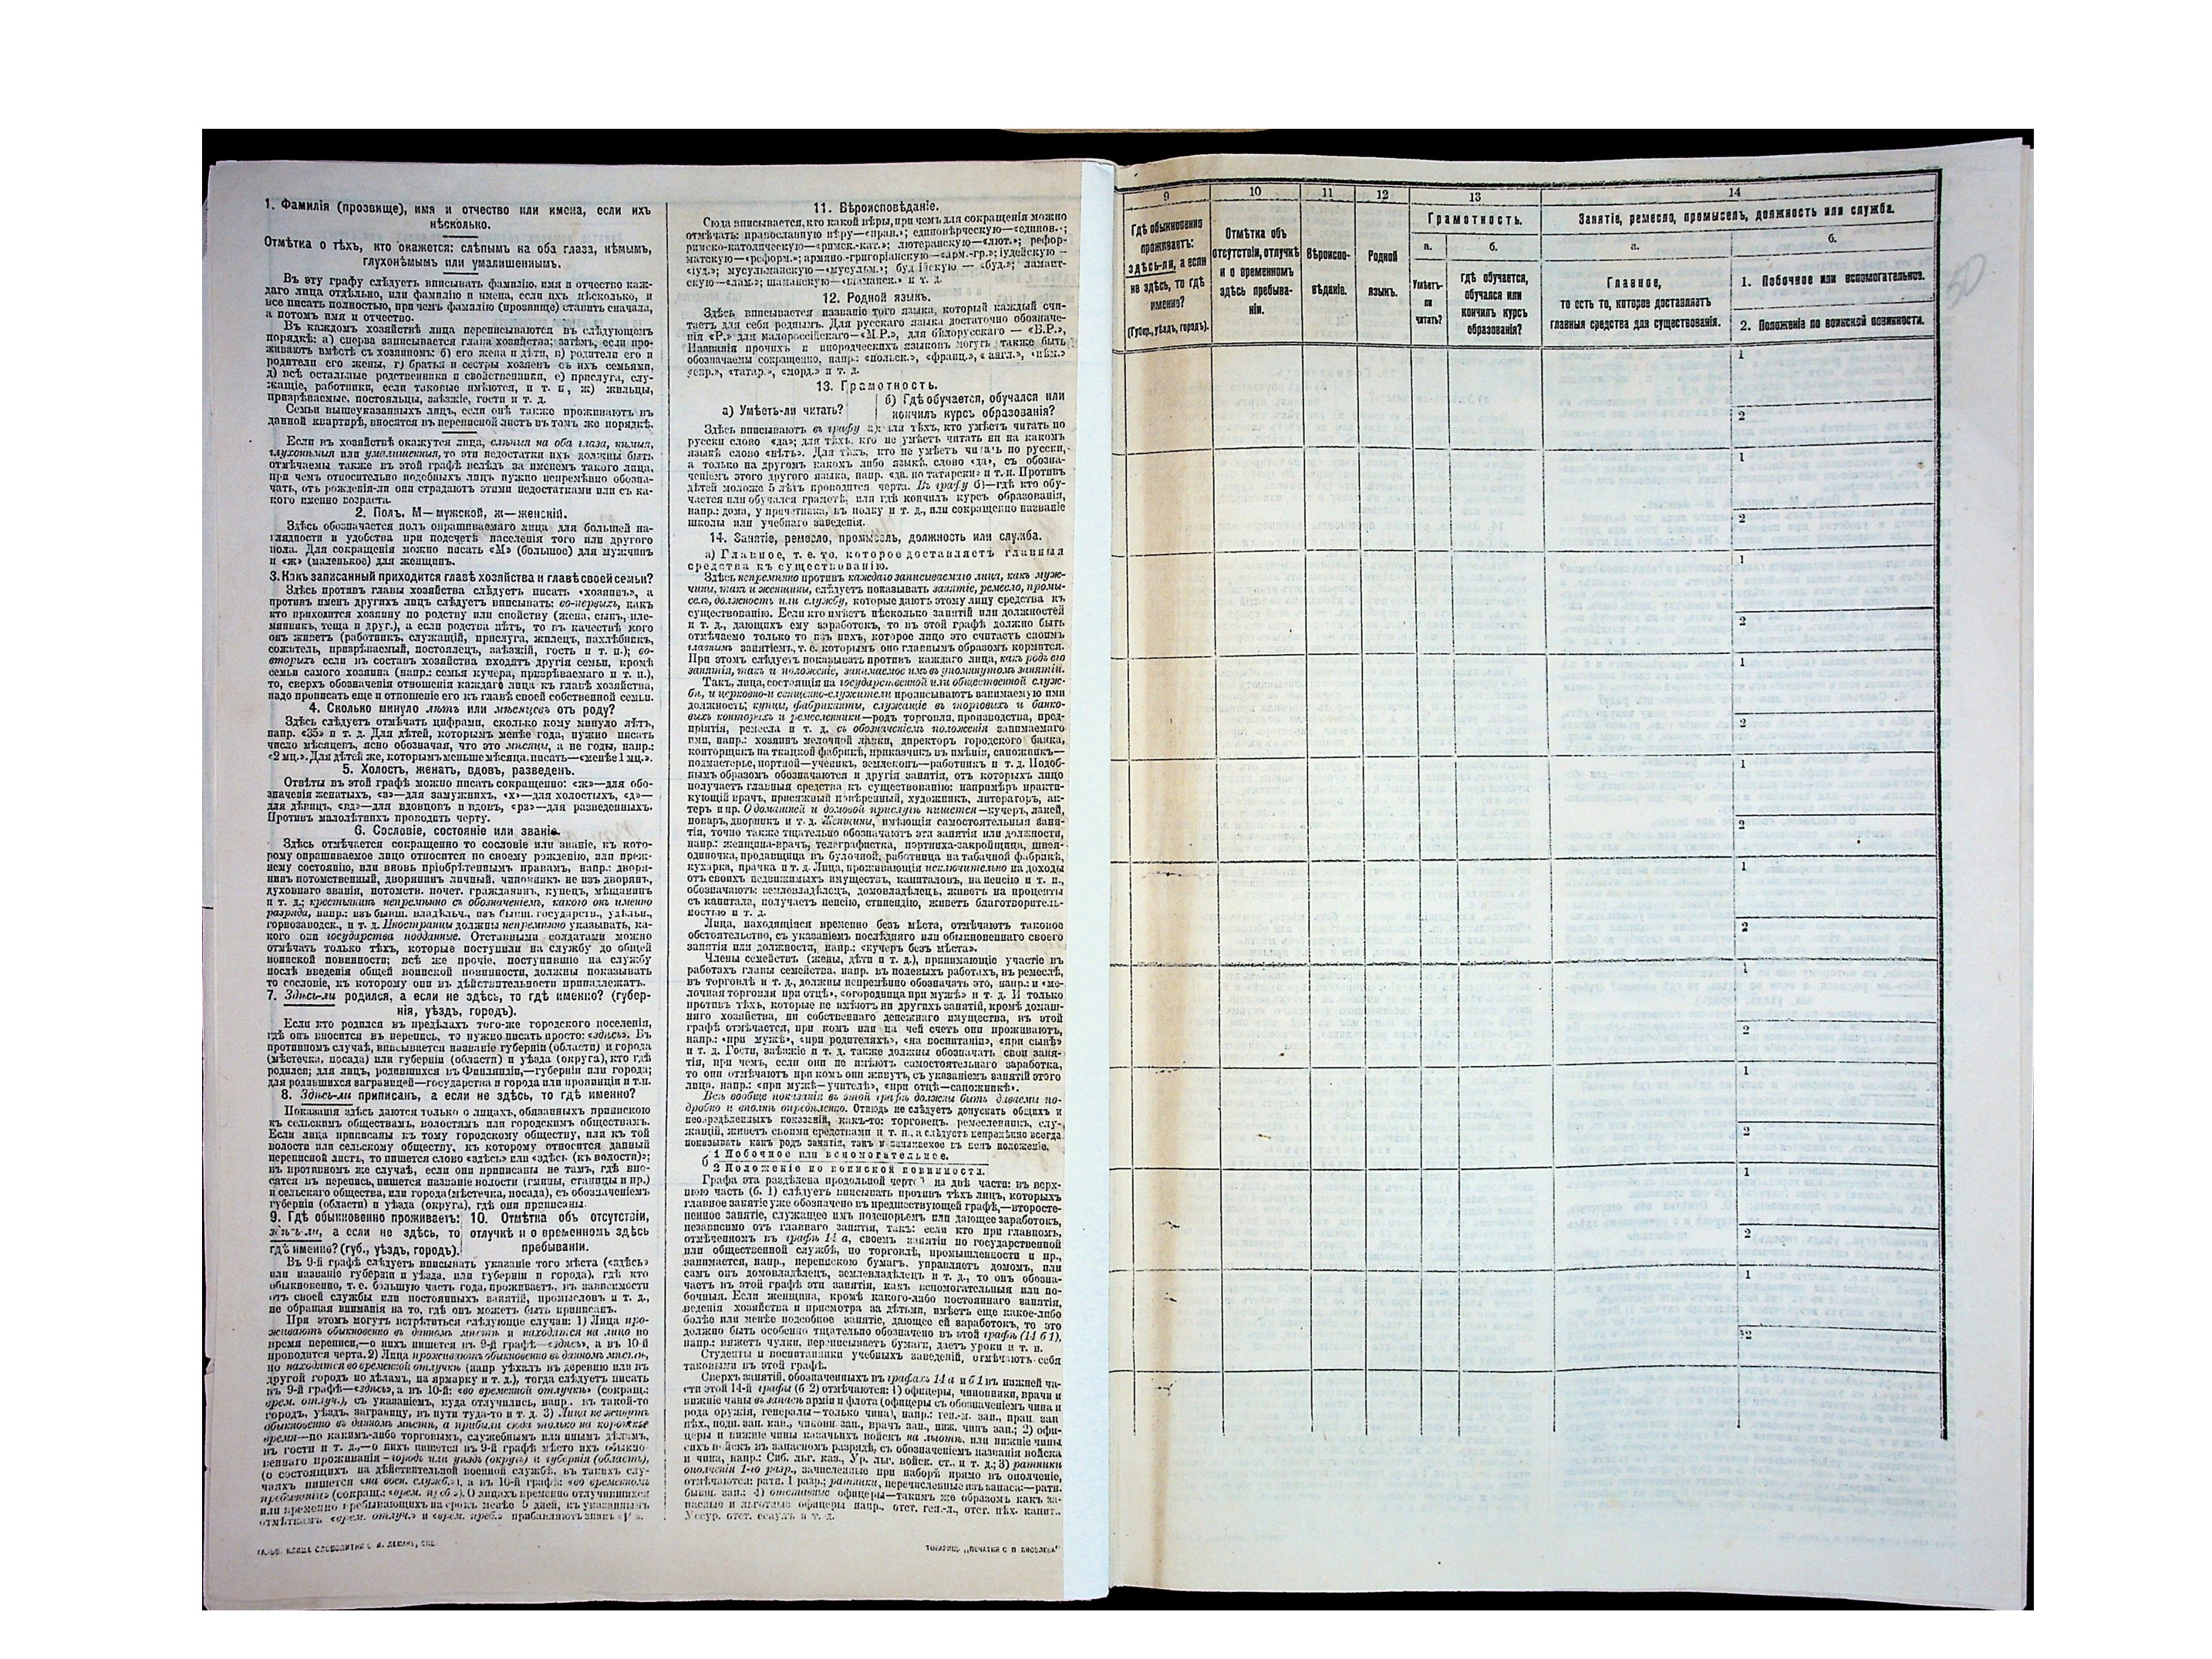 1. Фамилія (прозвище), имя и отчество или имена, если ихъ
нѣсколько.
Отмѣтка о тѣхъ, кто окажется: слѣпымъ на оба глаза, нѣмымъ,
глухонѣмымъ или умалишеннымъ.
Въ эту графу слѣдуетъ вписывать фамилію, имя и отчество каж-
даго лица отдѣльно, или фамилію и имена, если ихъ нѣсколько, и
все писать полностью, при чемъ фамилію (прозвище) ставить сначала,
а потомъ имя и отчество.
Въ каждомъ хозяйствѣ лица переписываются въ слѣдующемъ
порядкѣ: а) сперва записывается глава хозяйства; затѣмъ, если про-
живаютъ вмѣстѣ съ хозяиномъ: б) его жена и дѣти, в) родители его и
родители его жены, г) братья и сестры хозяевъ съ ихъ семьями,
д) всѣ остальные родственники и свойственники, е) прислуга, слу-
жащіе, работники, если таковые имѣются, и т. п., ж) жильцы,
призрѣваемые, постояльцы, заѣзжіе, гости и т. д.
Семьи вышеуказанныхъ лицъ, если онѣ также проживаютъ въ
данной квартирѣ, вносятся въ переписной листъ въ томъ же порядкѣ.
Если въ хозяйствѣ окажутся лица, слѣпыя на оба глаза, нѣмыя,
глухонѣмыя или умалишенныя, то эти недостатки ихъ должны быть
отмѣчаемы также въ этой графѣ вслѣдъ за именемъ такого лица,
при чемъ относительно подобныхъ лицъ нужно непремѣнно обозна-
чать, отъ рожденія-ли они страдаютъ этими недостатками или съ ка-
кого именно возраста.
2. Полъ. М—мужской, ж—женскій.
Здѣсь обозначается полъ опрашиваемаго лица для большей на-
глядности и удобства при подсчетѣ населенія того или другого
пола. Для сокращенія можно писать «М» (большое) для мужчинъ
и «ж» (маленькое) для женщинъ.
3. Какъ записанный приходится главѣ хозяйства и главѣ своей семьи?
Здѣсь противъ главы хозяйства слѣдуетъ писать «хозяинъ», а
противъ именъ другихъ лицъ слѣдуетъ вписывать: во-первыхъ, какъ
кто приходится хозяину по родству или свойству (жена, сынъ, пле-
мянникъ, теща и друг.), а если родства нѣтъ, то въ качествѣ кого
онъ живетъ (работникъ, служащій, прислуга, жилецъ, нахлѣбникъ,
сожитель, призрѣваемый, постоялецъ, заѣзжій, гость и т. п.); во-
вторыхъ если въ составъ хозяйства входятъ другія семьи, кромѣ
семьи самого хозяина (напр: семья кучера, призрѣваемаго и т. п.),
то, сверхъ обозначенія отношенія каждаго лица къ главѣ хозяйства,
надо прописать еще и отношеніе его къ главѣ своей собственной семьи.
4. Сколько минуло лѣтъ или мѣсяцевъ отъ роду?
Здѣсь слѣдуетъ отмѣчать цифрами, сколько кому минуло лѣтъ,
напр. «35» и т. д. Для дѣтей, которымъ менѣе года, нужно писать
число мѣсяцевъ, ясно обозначая, что это мѣсяцы, а не годы, напр.:
«2 мц.». Для дѣтей же, которымъ меньше мѣсяца, писать—«менѣе 1 мц.».
5. Холостъ, женатъ, вдовъ, разведенъ.
Отвѣты въ этой графѣ можно писать сокращенно: «ж»—для обо-
значенія женатыхъ, «з»—для замужнихъ, «х»—для холостыхъ, «д»—
для дѣвицъ, «вд»—для вдовцовъ и вдовъ, «рз»—для разведенныхъ.
Противъ малолѣтнихъ проводить черту.
6. Сословіе, состояніе или званіе.
Здѣсь отмѣчается сокращенно то сословіе или званіе, къ кото-
рому опрашиваемое лицо относится по своему рожденію, или преж-
нему состоянію, или вновь пріобрѣтеннымъ правамъ, напр.: дворя-
нинъ потомственный, дворянинъ личный, чиновникъ не изъ дворянъ,
духовнаго званія, потомств. почет. гражданинъ, купецъ, мѣщанинъ
и т. д.; крестьянинъ непремѣнно съ обозначеніемъ, какого онъ именно
разряда, напр.: изъ бывш. владѣльч., изъ бывш. государств., удѣльн.,
горнозаводск., и т. д. Иностранцы должны непремѣнно указывать, ка-
кого они государства подданные. Отставными солдатами можно
отмѣчать только тѣхъ, которые поступили на службу до общей
воинской повинности; всѣ же прочіе, поступившіе на службу
послѣ введенія общей воинской повинности, должны показывать
то сословіе, къ которому они въ дѣйствительности принадлежатъ.
7. Здѣсь-ли родился, а если не здѣсь, то гдѣ именно? (губер-
нія, уѣздъ, городъ).
Если кто родился въ предѣлахъ того-же городского поселенія,
гдѣ онъ вносится въ перепись, то нужно писать просто: «здѣсь». Въ
противномъ случаѣ, вписывается названіе губерніи (области) и города
(мѣстечка, посада) или губерніи (области) и уѣзда (округа), кто гдѣ
родился; для лицъ, родившихся въ Финляндіи,—губерніи или города;
для родившихся заграницей—государства и города или провинціи и т.п.
8. Здѣсь-ли приписанъ, а если не здѣсь, то гдѣ именно?
Показанія здѣсь даются только о лицахъ, обязанныхъ припискою
къ сельскимъ обществамъ, волостямъ или городскимъ обществамъ.
Если лица приписаны къ тому городскому обществу, или къ той
волости или сельскому обществу, къ которому относится данный
переписной листъ, то пишется слово «здѣсь» или «здѣсь (къ волости)»;
въ противномъ же случаѣ, если они приписаны не тамъ, гдѣ вно-
сятся въ перепись, пишется названіе волости (гмины, станицы и пр.)
и сельскаго общества, или города (мѣстечка, посада), съ обозначеніемъ
губерніи (области) и уѣзда (округа), гдѣ они приписаны.
9. Гдѣ обыкновенно проживаетъ:
здѣсь-ли, а если не здѣсь, то
гдѣ именно? (губ., уѣздъ, городъ).
10. Отмѣтка объ отсутствіи,
отлучкѣ и о временномъ здѣсь
пребываніи.
Въ 9-й графѣ слѣдуетъ вписывать указаніе того мѣста («здѣсь»
или названіе губерніи и уѣзда, или губерніи и города), гдѣ кто
обыкновенно, т. е. большую часть года, проживаетъ, въ зависимости
отъ своей службы или постоянныхъ занятій, промысловъ и т. д.,
не обращая вниманія на то, гдѣ онъ можетъ быть приписанъ.
При этомъ могутъ встрѣтиться слѣдующіе случаи: 1) Лица про-
живаютъ обыкновенно въ данномъ мѣстѣ и находятся на лицо во
время переписи,—о нихъ пишется въ 9-й графѣ—«здѣсь», а въ 10-й
проводится черта. 2) Лица проживаютъ обыкновенно въ данномъ мѣстѣ,
но находятся во временной отлучкѣ (напр уѣхалъ въ деревню или въ
другой городъ по дѣламъ, на ярмарку и т. д.), тогда слѣдуетъ писать
въ 9-й графѣ—«здѣсь», а въ 10-й: «во временной отлучкѣ» (сокращ.:
врем. отлуч.), съ указаніемъ, куда отлучились, напр. въ такой-то
городъ, уѣздъ, заграницу, въ пути туда-то и т. д. 3) Лица не живутъ
обыкновенно въ данномъ мѣстѣ, а прибыли сюда только на короткое
время—по какимъ-либо торговымъ, служебнымъ или инымъ дѣламъ,
въ гости и т. д.,—о нихъ пишется въ 9-й графѣ мѣсто ихъ обыкно-
веннаго проживанія—городъ или уѣздъ (округъ) и губернія (область),
(о состоящихъ на дѣйствительной военной службѣ, въ такихъ слу-
чаяхъ пишется «на воен. службѣ»), а въ 10-й графѣ: «во временномъ
пребываніи» (сокращ.: «врем. преб.»). О лицахъ временно отлучившихся
или временно пребывающихъ на срокъ менѣе 5 дней, къ указаннымъ
отмѣткамъ «врем. отлуч.» и «врем. преб.» прибавляютъ знакъ
11. Вѣроисповѣданіе.
Сюда вписывается, кто какой вѣры, при чемъ для сокращенія можно
отмѣчать: православную вѣру—«прав.»; единовѣрческую—«единов.»;
римско-католическую—«римск.-кат.»; лютеранскую—«лют.»; рефор-
матскую—«реформ.»; армяно-григоріанскую—«арм.-гр.»; іудейскую—
«іуд.»; мусульманскую—«мусульм.»; буддійскую — «буд.»; ламаит-
скую—«лам.»; шаманскую—«шаманск.» и т. д.
12. Родной языкъ.
Здѣсь вписывается названіе того языка, который каждый счи-
таетъ для себя роднымъ. Для русскаго языка достаточно обозначе-
нія «Р.» для малороссійскаго—«М.Р.», для бѣлорусскаго — «Б.Р.»,
Названія прочихъ и инородческихъ языковъ могутъ также быть
обозначаемы сокращенно, напр.: «польск.», «франц.», «англ.», «нѣм.»
«евр.», «татар.», «морд.» и т. д.
13. Грамотность.
а) Умѣетъ-ли читать?
б) Гдѣ обучается, обучался или
кончилъ курсъ образованія?
Здѣсь вписываютъ въ графу а) для тѣхъ, кто умѣетъ читать по
русски слово «да»; для тѣхъ, кто не умѣетъ читать ни на какомъ
языкѣ слово «нѣтъ». Для тѣхъ, кто не умѣетъ читать по русски,
а только на другомъ какомъ либо языкѣ, слово «да», съ обозна-
ченіемъ этого другого языка, напр. «да, по татарски» и т. п. Противъ
дѣтей моложе 5 лѣтъ проводится черта. Въ графу б)—гдѣ кто обу-
чается или обучался грамотѣ, или гдѣ кончилъ курсъ образованія,
напр.: дома, у причетника, въ полку и т. д., или сокращенно названіе
школы или учебнаго заведенія.
14. Занятіе, ремесло, промыселъ, должность или служба.
а) Главное, т. е. то, которое доставляетъ главныя
средства къ существованію.
Здѣсь непремѣнно противъ каждаго записываемаго лица, какъ муж-
чины, такъ и женщины, слѣдуетъ показывать занятіе, ремесло, промы-
селъ, должность или службу, которые даютъ этому лицу средства къ
существованію. Если кто имѣетъ нѣсколько занятій или должностей
и т. д., дающихъ ему заработокъ, то въ этой графѣ должно быть
отмѣчаемо только то изъ нихъ, которое лицо это считаетъ своимъ
главнымъ занятіемъ, т. е. которымъ оно главнымъ образомъ кормится.
При этомъ слѣдуетъ показывать противъ каждаго лица, какъ родъ его
занятія, такъ и положеніе, занимаемое имъ въ упомянутомъ занятіи.
Такъ, лица, состоящія на государственной или общественной служ-
бѣ, и церковно-и священно-служители прописываютъ занимаемую ими
должность; купцы, фабриканты, служащіе въ торговыхъ и банко-
выхъ конторахъ и ремесленники—родъ торговли, производства, пред-
пріятія, ремесла и т. д. съ обозначеніемъ положенія занимаемаго
ими, напр.: хозяинъ мелочной лавки, директоръ городского банка,
конторщикъ на ткацкой фабрикѣ, приказчикъ въ имѣніи, сапожникъ—
подмастерье, портной—ученикъ, землекопъ—работникъ и т. д. Подоб-
нымъ образомъ обозначаются и другія занятія, отъ которыхъ лицо
получаетъ главныя средства къ существованію: напримѣръ практи-
кующій врачъ, присяжный повѣренный, художникъ, литераторъ, ак-
теръ и пр. О домашней и домовой прислугѣ пишется—кучеръ, лакей,
поваръ, дворникъ и т. д. Женщины, имѣющія самостоятельныя заня-
тія, точно также тщательно обозначаютъ эти занятія или должности,
напр.: женщина-врачъ, телеграфистка, портниха-закройщица, швея-
одиночка, продавщица въ булочной, работница на табачной фабрикѣ,
кухарка, прачка и т. д. Лица, проживающія исключительно на доходы
отъ своихъ недвижимыхъ имуществъ, капиталовъ, на пенсію и т. п.,
обозначаютъ: землевладѣлецъ, домовладѣлецъ, живетъ на проценты
съ капитала, получаетъ пенсію, стипендію, живетъ благотворитель-
ностью и т. д.
Лица, находящіяся временно безъ мѣста, отмѣчаютъ таковое
обстоятельство, съ указаніемъ послѣдняго или обыкновеннаго своего
занятія или должности, напр.: «кучеръ безъ мѣста».
Члены семействъ (жены, дѣти и т. д.), принимающіе участіе въ
работахъ главы семейства, напр. въ полевыхъ работахъ, въ ремеслѣ,
въ торговлѣ и т. д., должны непремѣнно обозначать это, напр.: «ме-
лочная торговля при отцѣ», «огородница при мужѣ» и т. д. И только
противъ тѣхъ, которые не имѣютъ ни другихъ занятій, кромѣ домаш-
няго хозяйства, ни собственнаго денежнаго имущества, въ этой
графѣ отмѣчается, при комъ или на чей счетъ они проживаютъ,
напр.: «при мужѣ», «при родителяхъ», «на воспитаніи», «при сынѣ»
и т. д. Гости, заѣзжіе и т. д. также должны обозначать свои заня-
тія, при чемъ, если они не имѣютъ самостоятельнаго заработка,
то они отмѣчаютъ при комъ они живутъ, съ указаніемъ занятій этого
лица. напр.: «при мужѣ—учителѣ», «при отцѣ—сапожникѣ».
Всѣ вообще показанія въ этой графѣ должны быть даваемы по-
дробно и вполнѣ опредѣленно. Отнюдь не слѣдуетъ допускать общихъ и
неопредѣленныхъ показаній, какъ-то: торговецъ, ремесленникъ, слу-
жащій, живетъ своими средствами и т. п., а слѣдуетъ непремѣнно всегда
показывать какъ родъ занятія, такъ и занимаемое въ немъ положеніе.
б 1 Побочное или вспомогательное.
2 Положеніе по воинской повинности.
Графа эта раздѣлена продольной чертой на двѣ части: въ верх-
нюю часть (б. 1) слѣдуетъ вписывать противъ тѣхъ лицъ, которыхъ
главное занятіе уже обозначено въ предшествующей графѣ,—второсте-
пенное занятіе, служащее имъ подспорьемъ или дающее заработокъ,
независимо отъ главнаго занятія, такъ: если кто при главномъ,
отмѣченномъ въ графѣ 14 а, своемъ занятіи по государственной
или общественной службѣ, по торговлѣ, промышленности и пр.,
занимается, напр., перепискою бумагъ, управляетъ домомъ, или
самъ онъ домовладѣлецъ, землевладѣлецъ и т. д., то онъ обозна-
чаетъ въ этой графѣ эти занятія, какъ вспомогательныя или по-
бочныя. Если женщина, кромѣ какого-либо постояннаго занятія,
веденія хозяйства и присмотра за дѣтьми, имѣетъ еще какое-либо
болѣе или менѣе подсобное занятіе, дающее ей заработокъ, то это
должно быть особенно тщательно обозначено въ этой графѣ (14 б 1),
напр.: вяжетъ чулки, переписываетъ бумаги, даетъ уроки и т. п.
Студенты и воспитанники учебныхъ заведеній, отмѣчаютъ себя
таковыми въ этой графѣ.
Сверхъ занятій, обозначенныхъ въ графахъ 14 а и б 1 въ нижней ча-
сти этой 14-й графы (б 2) отмѣчаются: 1) офицеры, чиновники, врачи и
нижніе чины въ запасѣ арміи и флота (офицеры съ обозначеніемъ чина и
рода оружія, генералы—только чина), напр.: ген.-м. зап., прап. зап
пѣх., подп. зап. кав., чиновн. зап., врачъ зап., ниж. чинъ зап.; 2) офи-
церы и нижніе чины казачьихъ войскъ на льготѣ, или нижніе чины
сихъ войскъ въ запасномъ разрядѣ, съ обозначеніемъ названія войска
и чина, напр.: Сиб. льг. каз., Ур. льг. войск. ст., и т. д.; 3) ратники
ополченія 1-го разр., зачисленные при наборѣ прямо въ ополченіе,
отмѣчаются: ратн. 1 разр.; ратники, перечисленные изъ запаса:—ратн.
бывш. зап.; 4) отставные офицеры—такимъ же образомъ какъ за-
пасные и льготные офицеры напр., отст. ген.-л., отст. пѣх. капит.,
Уссур. отст. есаулъ и т. д.
ТОВАРИЩ. „ПЕЧАТНЯ С П ЯКОВЛЕВА"
9 10 11 12 13 14
Гдѣ обыкновенно
проживаетъ:
здѣсь-ли, а если
не здѣсь, то гдѣ
именно?
(Губер., уѣздъ, городъ).
Отмѣтка объ
отсутствіи, отлучкѣ
и о временномъ
здѣсь пребыва-
ніи.
Вѣроиспо-
вѣданіе.
Родной
языкъ.
Грамотность.
а.
Умѣетъ-
ли
читать?
б.
Гдѣ обучается,
обучался или
кончилъ курсъ
образованія?
Занятіе, ремесло, промыселъ, должность или служба.
а.
Главное,
то есть то, которое доставляетъ
главныя средства для существованія.
б.
1. Побочное или вспомогательное.
2. Положеніе по воинской повинности.
50
1
2
1
2
1
2
1
2
1
2
1
2
1
2
1
2
1
2
1
2